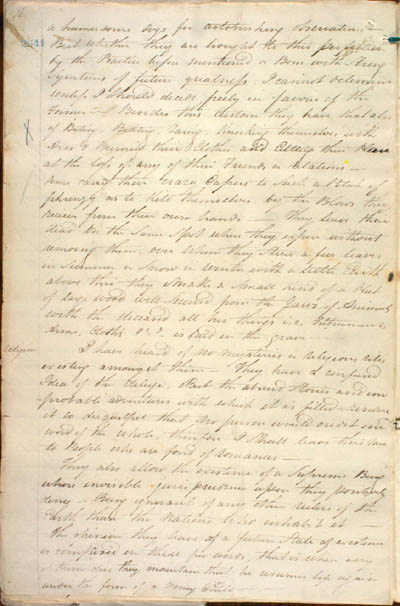 a humorsome boys for astonishing observations
But whether they are brought to this perfection
by the Practice before mentioned or Born with Airy
Symptoms of future greatness I cannot determine
unless I should decide freely in favour of the
former — Besides this Custom they have that also
of Biting, Beating, Knocking themselves with
Axes & Burning their Clothes and Cutting their Hair
at the loss of any of their Friends or Relations —
some carry their Crazy Capers to Such a Pitch of
phrenzy as to kill themselves by the Blows they
receive from their own hands — They leave their
dead on the Same Spot when they expire without
removing them, over whom they Strew a few leaves
in Summer or Snow in Winter with a little Earth
above this they Make a Small kind of a
of large wood well Secured from the Jaws of Animals
with the deceased all his things i.e. Instruments,
Arms, Cloths &c. is laid in the grave —
Religion
I have heard of no mysteries or religious rites
existing amongst them — They have a confused
Idea of the Deluge, But the absurd Stories and im
probable adventures with which it is filled render
it so disgustful that no person would credit one
word of the whole, therefore I Shall leave their
to People who are fond of Romances —
They also allow the existence of a Supreme Being
whose invisible upon they positively
deny — Being ignorant of any other Rulers of the
Earth than the Nations who inhabit it —
The opinion they have of a future State of existence
is comprised in these few words, that is when any
of them dies they maintain that he resumes life again
under the form of a Young Child —